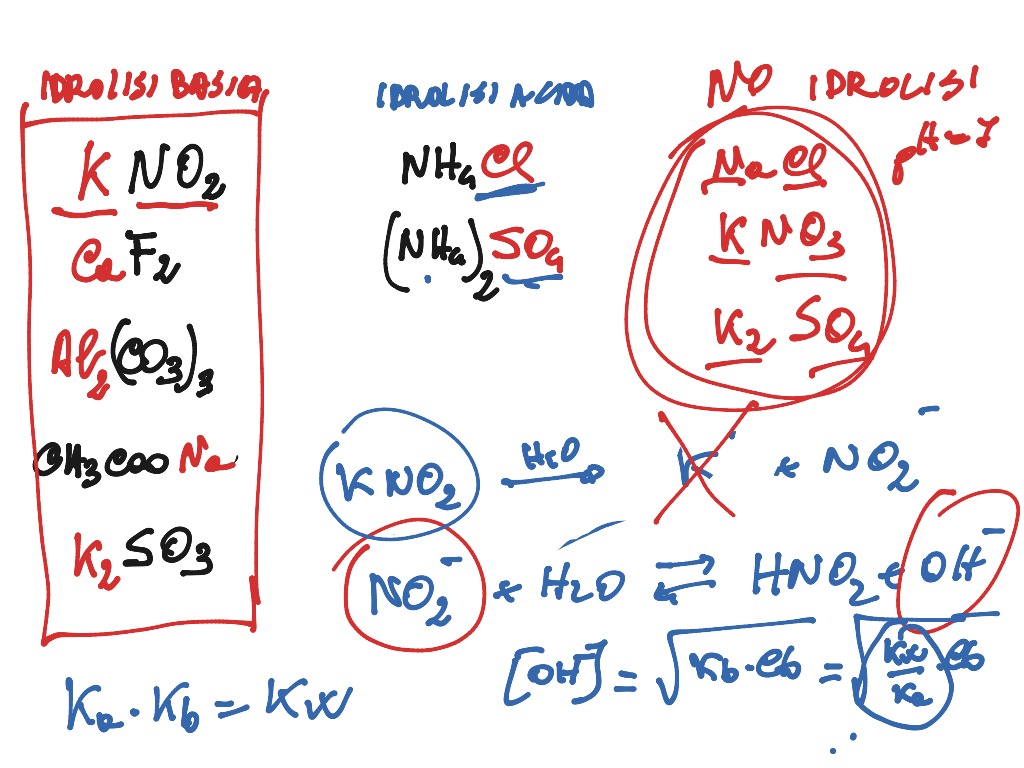 IDROLISI BASICA
KNO2
CaF2
Al2(CO3)3
CH3COONa
K2SO3
IDROLISI ACIDA
NH4Cl
(NH4)2SO4
NO IDROLISI
pH=7
NaCl
KNO3
K2SO4
KNO2 H2O → K+ + NO2-
NO2- + H2O ⇌ HNO2 + OH-
[OH-] = √Kb·Cb = √Kw/Ka·Cb
Ka·Kb = Kw